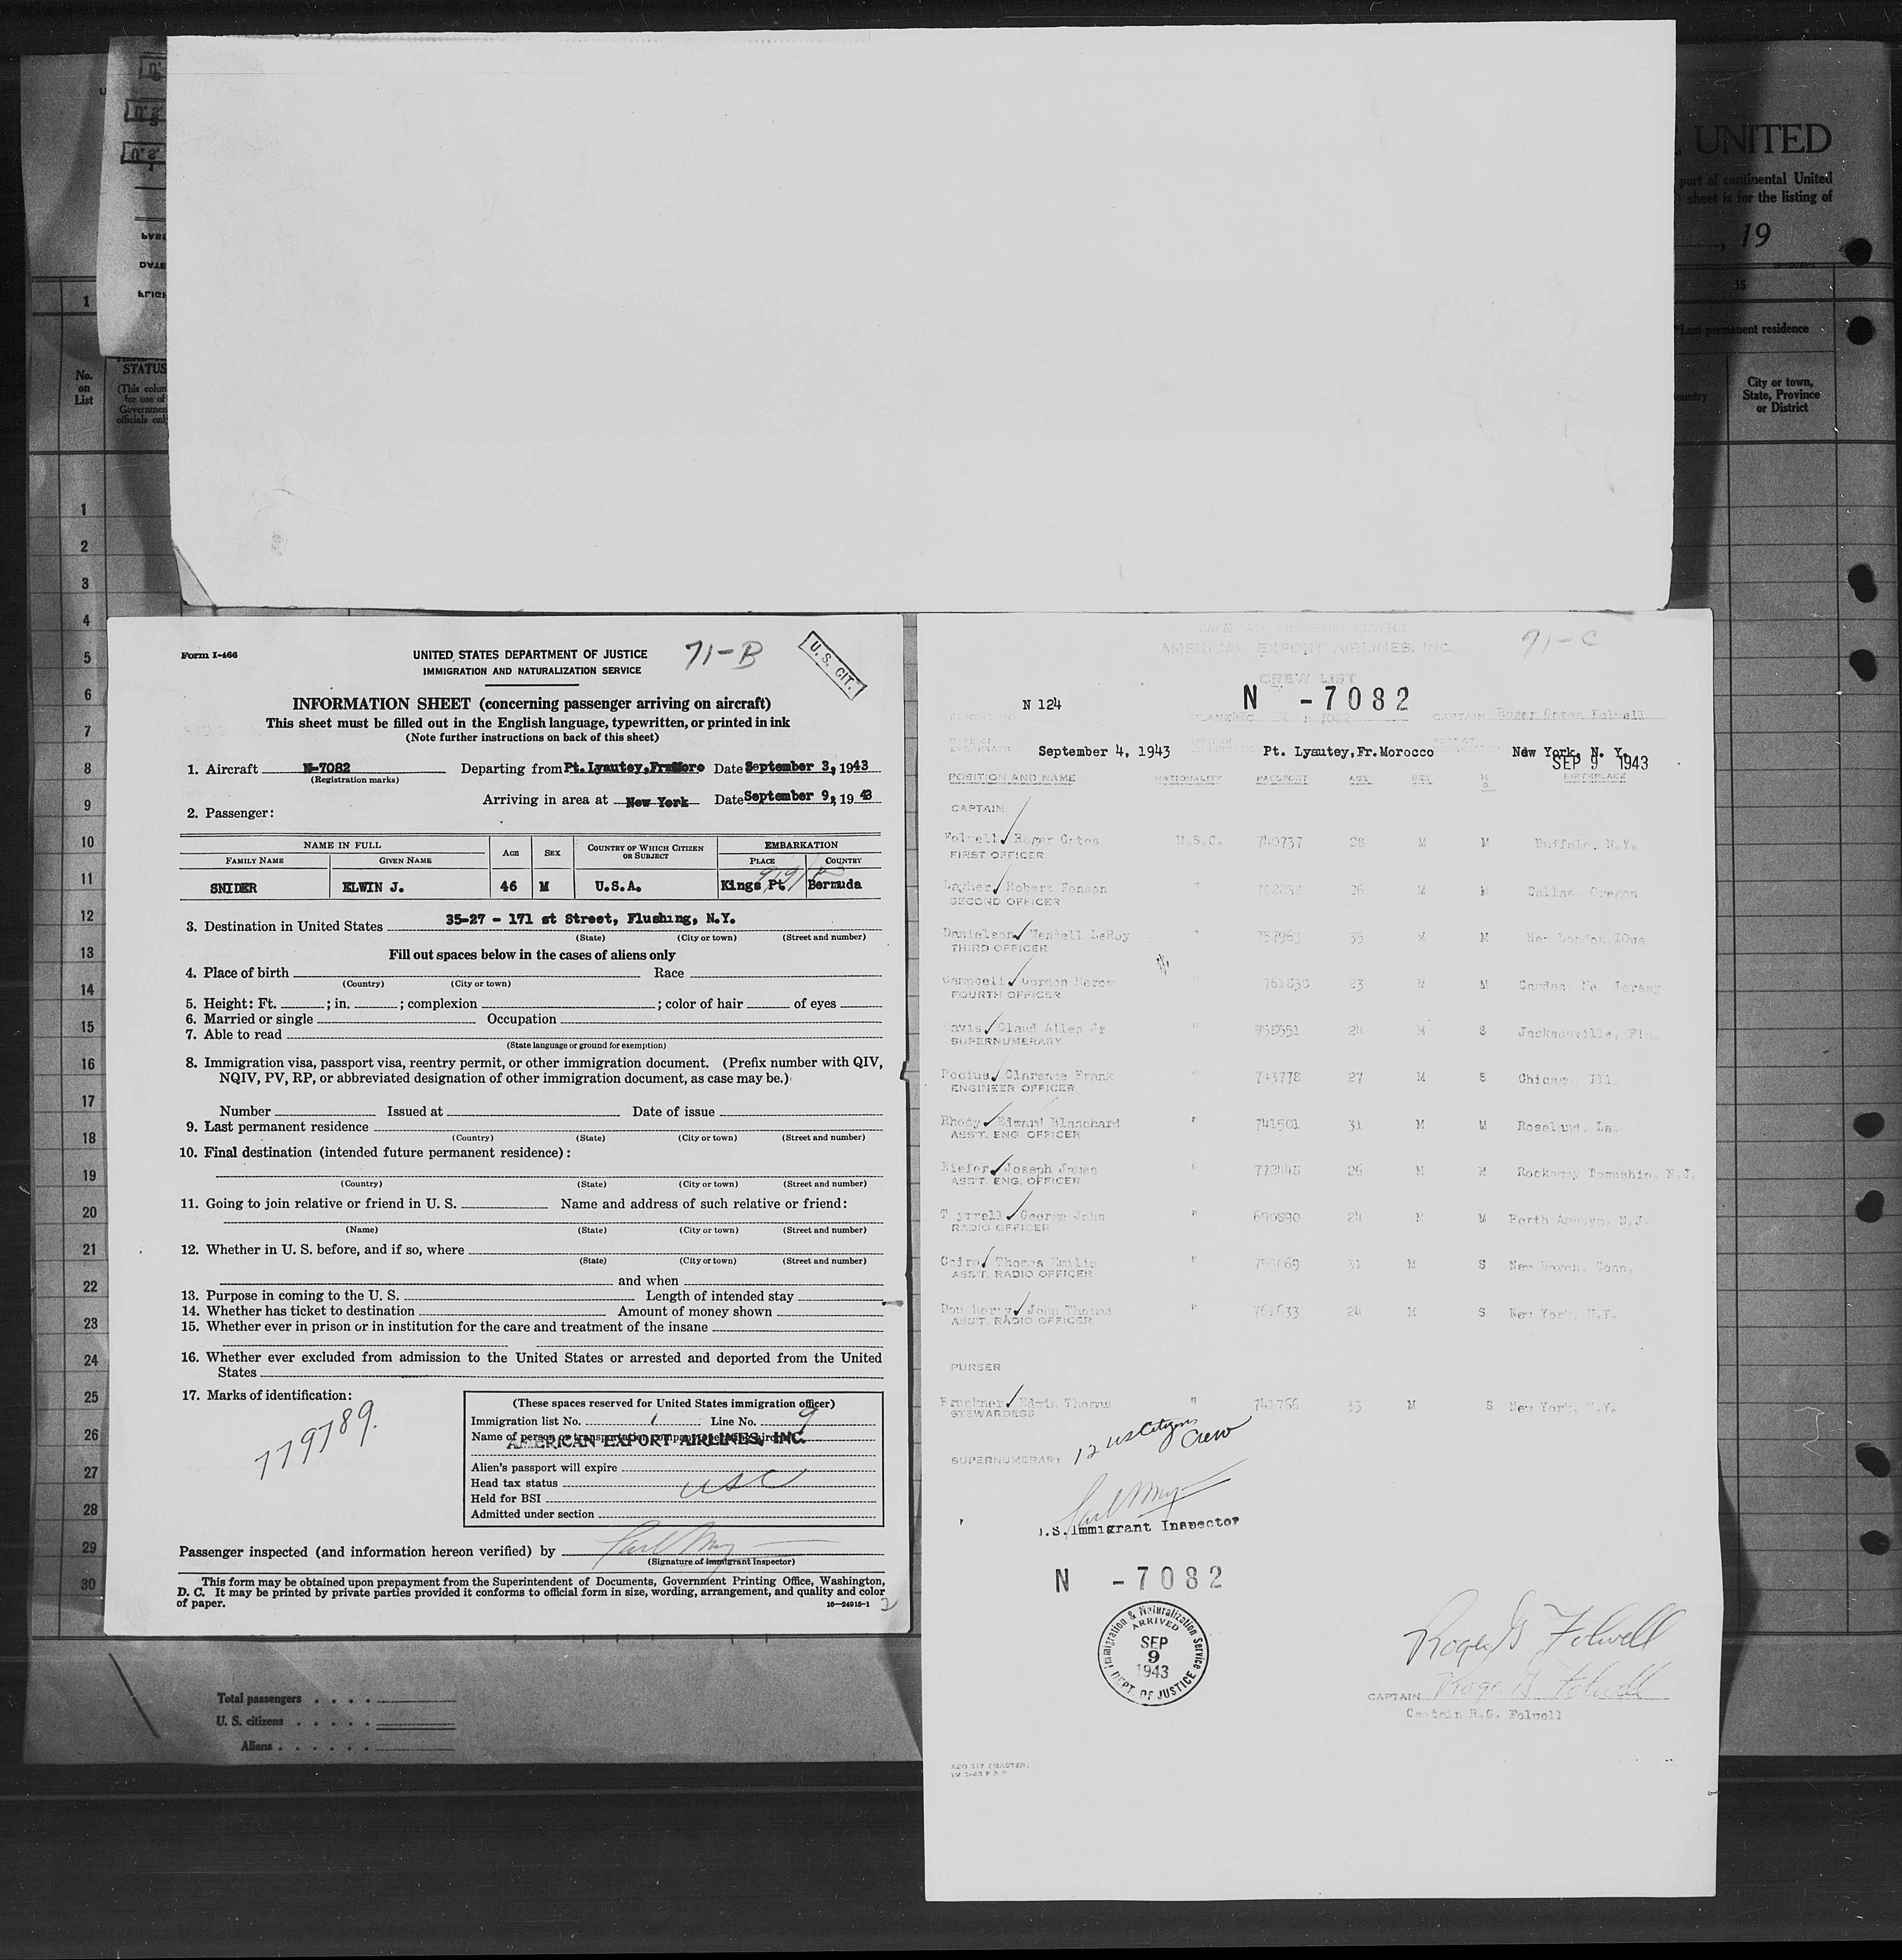 UNITED
port of continental United
sheet is for the listing of
, 19
15
*Last permanent residence
City or town,
State, Province
or District
No.
on
List
STATUS
(This colum
for use of
Governmen
officials only
1
1
2
3
4
5
6
7
8
9
10
11
12
13
14
15
16
17
18
19
20
21
22
23
24
25
26
27
28
29
30
Total passengers
U. S. citizens
Aliens
Form I-466
UNITED STATES DEPARTMENT OF JUSTICE
IMMIGRATION AND NATURALIZATION SERVICE
71-B
U. S. CIT.
INFORMATION SHEET (concerning passenger arriving on aircraft)
This sheet must be filled out in the English language, typewritten, or printed in ink
(Note further instructions on back of this sheet)
1. Aircraft N-7082 Departing from Pt. Lyautey, Date September 3, 1943
(Registration marks)
Arriving in area at New York Date September 9, 1943
2. Passenger:
NAME IN FULL AGE SEX COUNTRY OF WHICH CITIZEN OR SUBJECT EMBARKATION
FAMILY NAME GIVEN NAME PLACE COUNTRY
SNIDER ELWIN J. 46 M U.S.A. Kings Pt Bermuda
3. Destination in United States 35-27 - 171 st Street, Flushing, N.Y.
(State) (City or town) (Street and number)
Fill out spaces below in the cases of aliens only
4. Place of birth Race
(Country) (City or town)
5. Height: Ft. ; in. ; complexion ; color of hair of eyes
6. Married or single Occupation
7. Able to read
(State language or ground for exemption)
8. Immigration visa, passport visa, reentry permit, or other immigration document. (Prefix number with QIV,
NQIV, PV, RP, or abbreviated designation of other immigration document, as case may be.)
Number Issued at Date of issue
9. Last permanent residence
(Country) (State) (City or town) (Street and number)
10. Final destination (intended future permanent residence):
(Country) (State) (City or town) (Street and number)
11. Going to join relative or friend in U. S. Name and address of such relative or friend:
(Name) (State) (City or town) (Street and number)
12. Whether in U. S. before, and if so, where
(State) (City or town) (Street and number)
and when
13. Purpose in coming to the U. S. Length of intended stay
14. Whether has ticket to destination Amount of money shown
15. Whether ever in prison or in institution for the care and treatment of the insane
16. Whether ever excluded from admission to the United States or arrested and deported from the United
States
17. Marks of identification:
779789.
(These spaces reserved for United States immigration officer)
Immigration list No. 1 Line No. 9
Name of person or transportation company operating aircraft
AMERICAN EXPORT AIRLINES, INC.
Alien's passport will expire
Head tax status usc
Held for BSI
Admitted under section
Passenger inspected (and information hereon verified) by
(Signature of Immigrant Inspector)
This form may be obtained upon prepayment from the Superintendent of Documents, Government Printing Office, Washington,
D. C. It may be printed by private parties provided it conforms to official form in size, wording, arrangement, and quality and color
of paper. 16—24915-1
2
AMERICAN EXPORT AIRLINES, INC.
71-C
CREW LIST
N 124 N -7082
CAPTAIN Roger Gates Folwell
September 4, 1943 Pt. Lyautey, Fr. Morocco New York, N. Y.
SEP 9 1943
POSITION AND NAME NATIONALITY PASSPORT AGE SEX M S BIRTHPLACE
CAPTAIN
Folwell Roger Gates U.S.C. 740737 28 M M Buffalo, N.Y.
FIRST OFFICER
Layher Robert Fenson " 26 M M Dallas, Oregon
SECOND OFFICER
Danielson Wendell LeRoy " 757963 35 M M New London, Iowa
THIRD OFFICER
Campbell Gordon 761830 23 M M Camden, Ne Jersey
FOURTH OFFICER
Davis Claud Allen Jr " 24 M S Jacksonville, Fla.
SUPERNUMERARY
Pocius Clarence Frank " 743778 27 M S Chicago Ill.
ENGINEER OFFICER
Rhody Edward Blanchard " 741501 31 M M Roseland, La.
ASS'T. ENG. OFFICER
Kiefer Joseph James " 26 M M Rockaway Township, N.J.
ASS'T. ENG. OFFICER
Tyrrell George John " 690890 24 M M Perth Amboy, N.J.
RADIO OFFICER
Thomas Emilio " 31 M S New Haven, Conn.
ASS'T. RADIO OFFICER
John Thomas " 24 M S New York, N.Y.
ASS'T. RADIO OFFICER
PURSER
Bruckner Edwin Thomas " 741766 33 M S New York, N.Y.
STEWARDESS
12 US Citizens
Crew
SUPERNUMERARY
U.S. Immigrant Inspector
N -7082
Immigration & Naturalization Service
ARRIVED
SEP
9
1943
DEPT. OF JUSTICE
Roger G Folwell
CAPTAIN Roger G Folwell
Captain R.G. Folwell